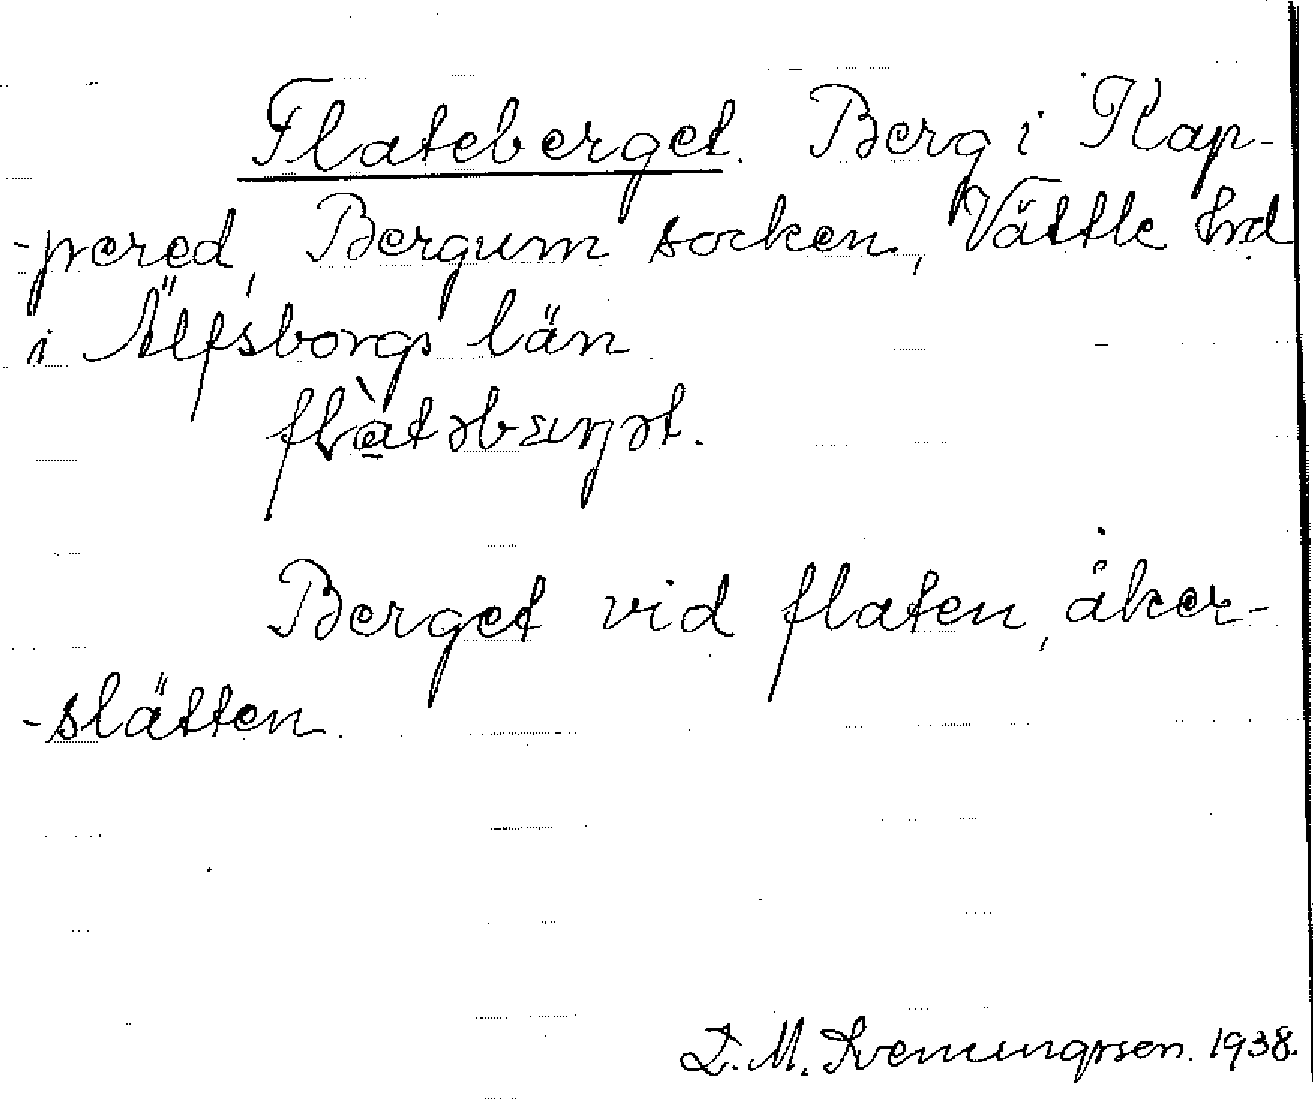 Flateberget. Berg i Kap-
-pered, Bergum socken, Vättle hrd
i Älfsborgs län
Berget vid flaten, åker-
-slätten.
D. M. Svenungsson. 1938.